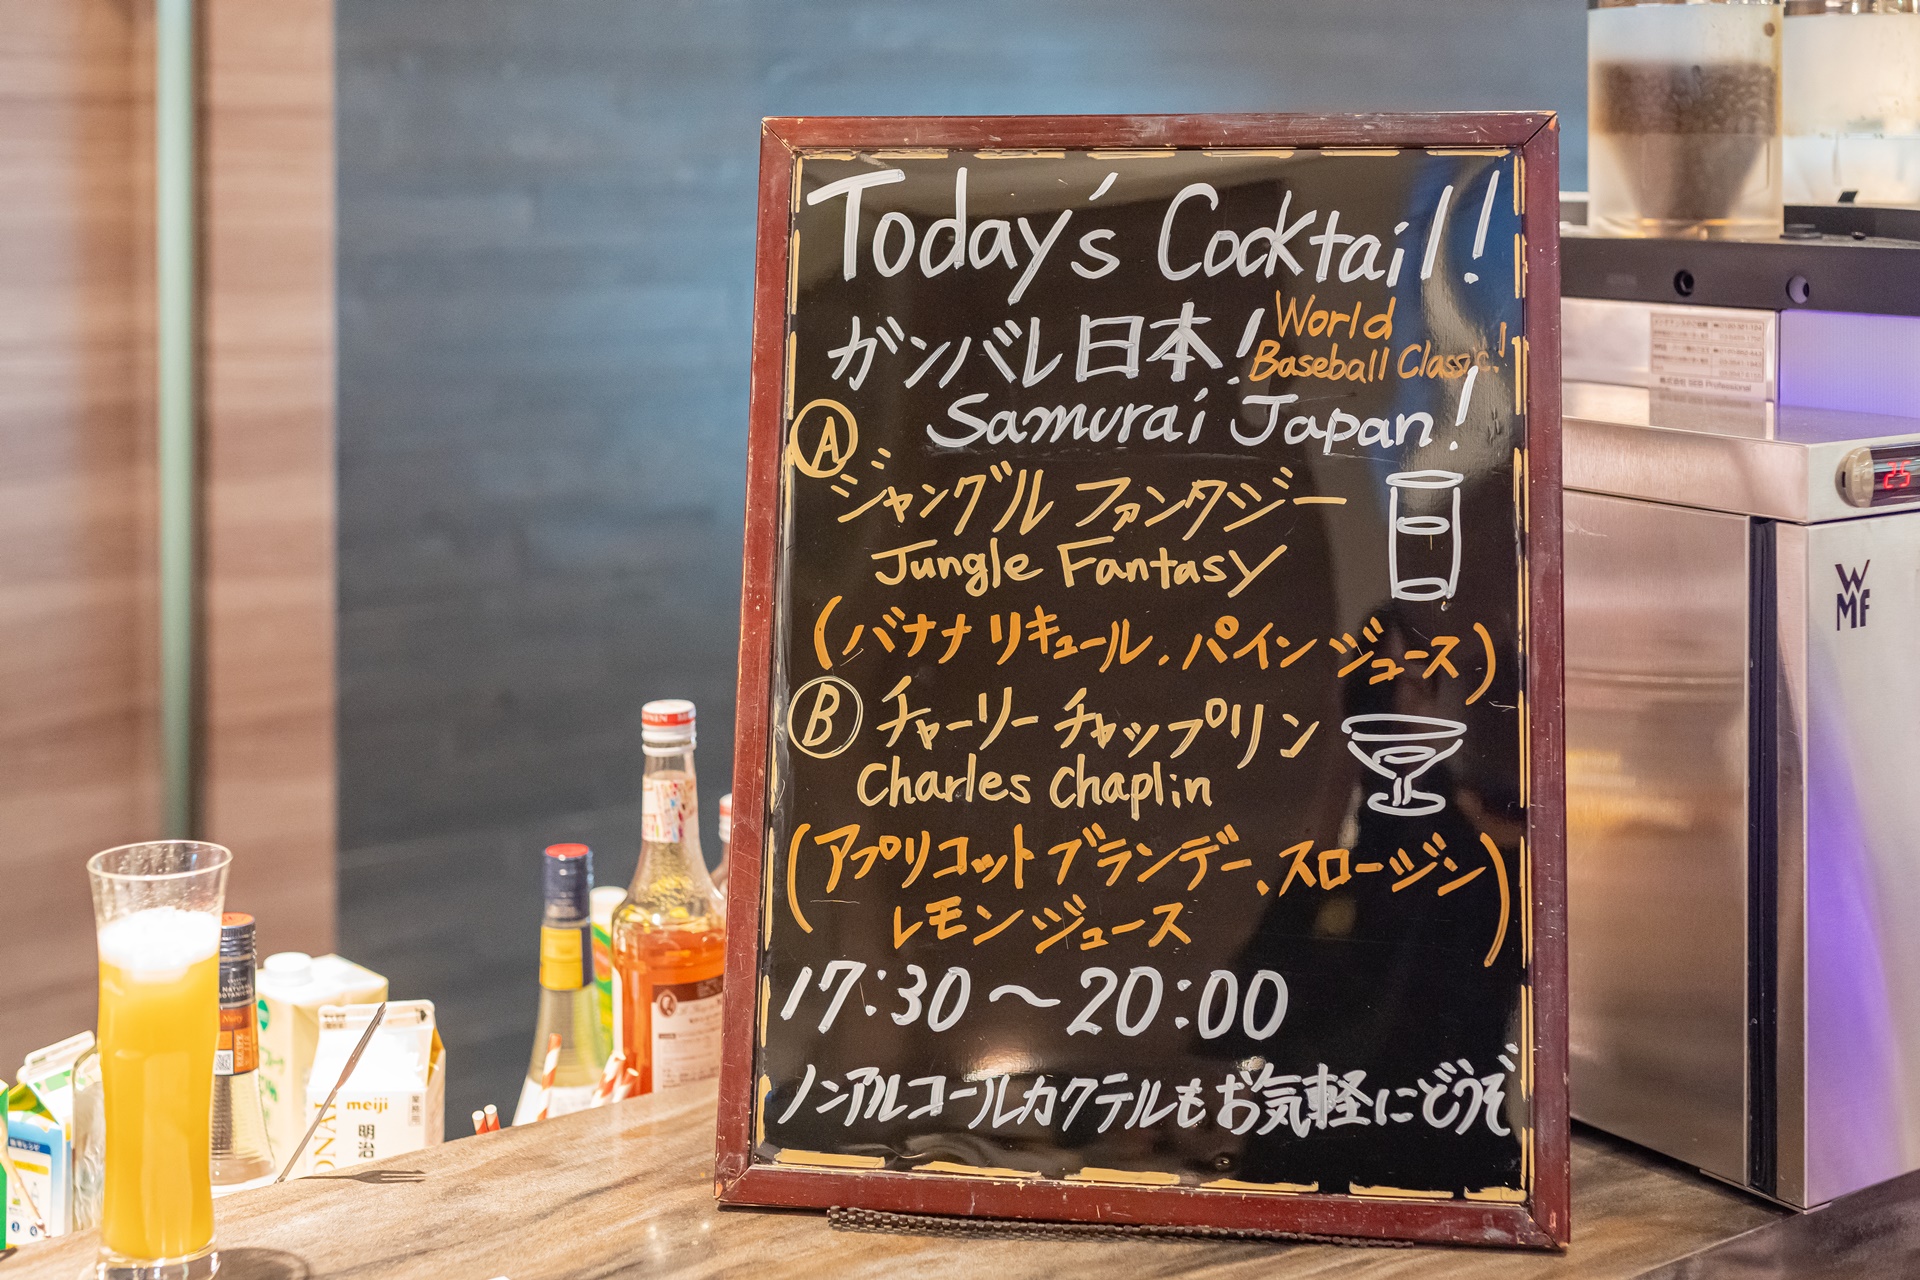 Today's Cocktail!
ガンバレ日本!
World
Baseball Classic!
Samurai Japan!
A
ジャングル ファンタジー
Jungle Fantasy
(バナナ リキュール、パイン ジュース)
B
チャーリー チャップリン
Charles Chaplin
(アプリコット ブランデー、スロージン
レモン ジュース)
17:30〜20:00
ノンアルコールカクテルもお気軽にどうぞ
meiji
明治
25
WMF